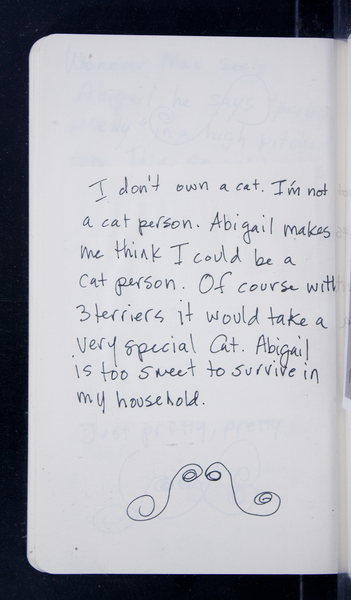 I don't own a cat. I'm not
a cat person. Abigail makes
me think I could be a
cat person. Of course with
3 terriers it would take a
very special Cat. Abigail
is too sweet to survive in
my household.